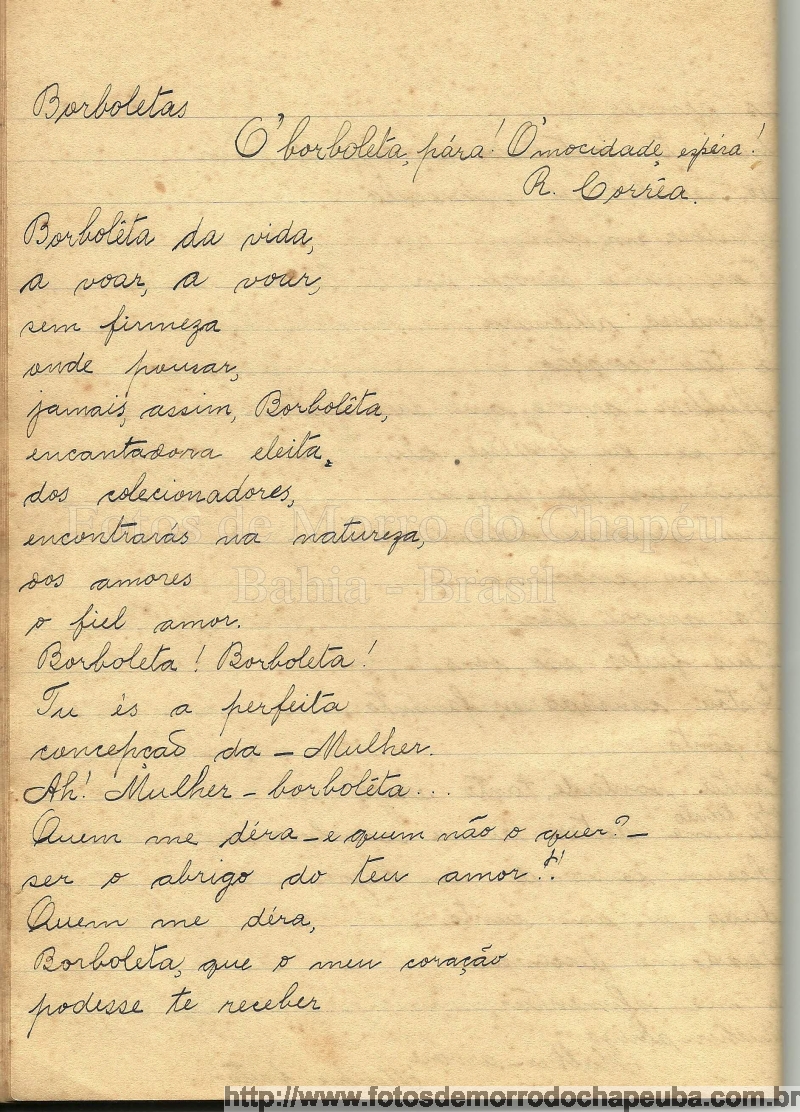 Borboletas
O' borboleta, pára! O' mocidade, espéra!
R. Corrêa.
Borbolêta da vida,
a voar, a voar,
sem firmeza
onde pousar,
jamais, assim, Borbolêta,
encantadora eleita,
dos colecionadores,
encontrarás na natureza,
dos amores
o fiel amor.
Borboleta! Borboleta!
Tu és a perfeita
concepção da - Mulher.
Ah! Mulher - borbolêta...
Quem me déra - e quem não o quer? -
ser o abrigo do teu amor!!
Quem me déra,
Borboleta, que o meu coração
podesse te receber
Fotos de Morro do Chapéu
Bahia - Brasil
http://www.fotosdemorrodochapeuba.com.br